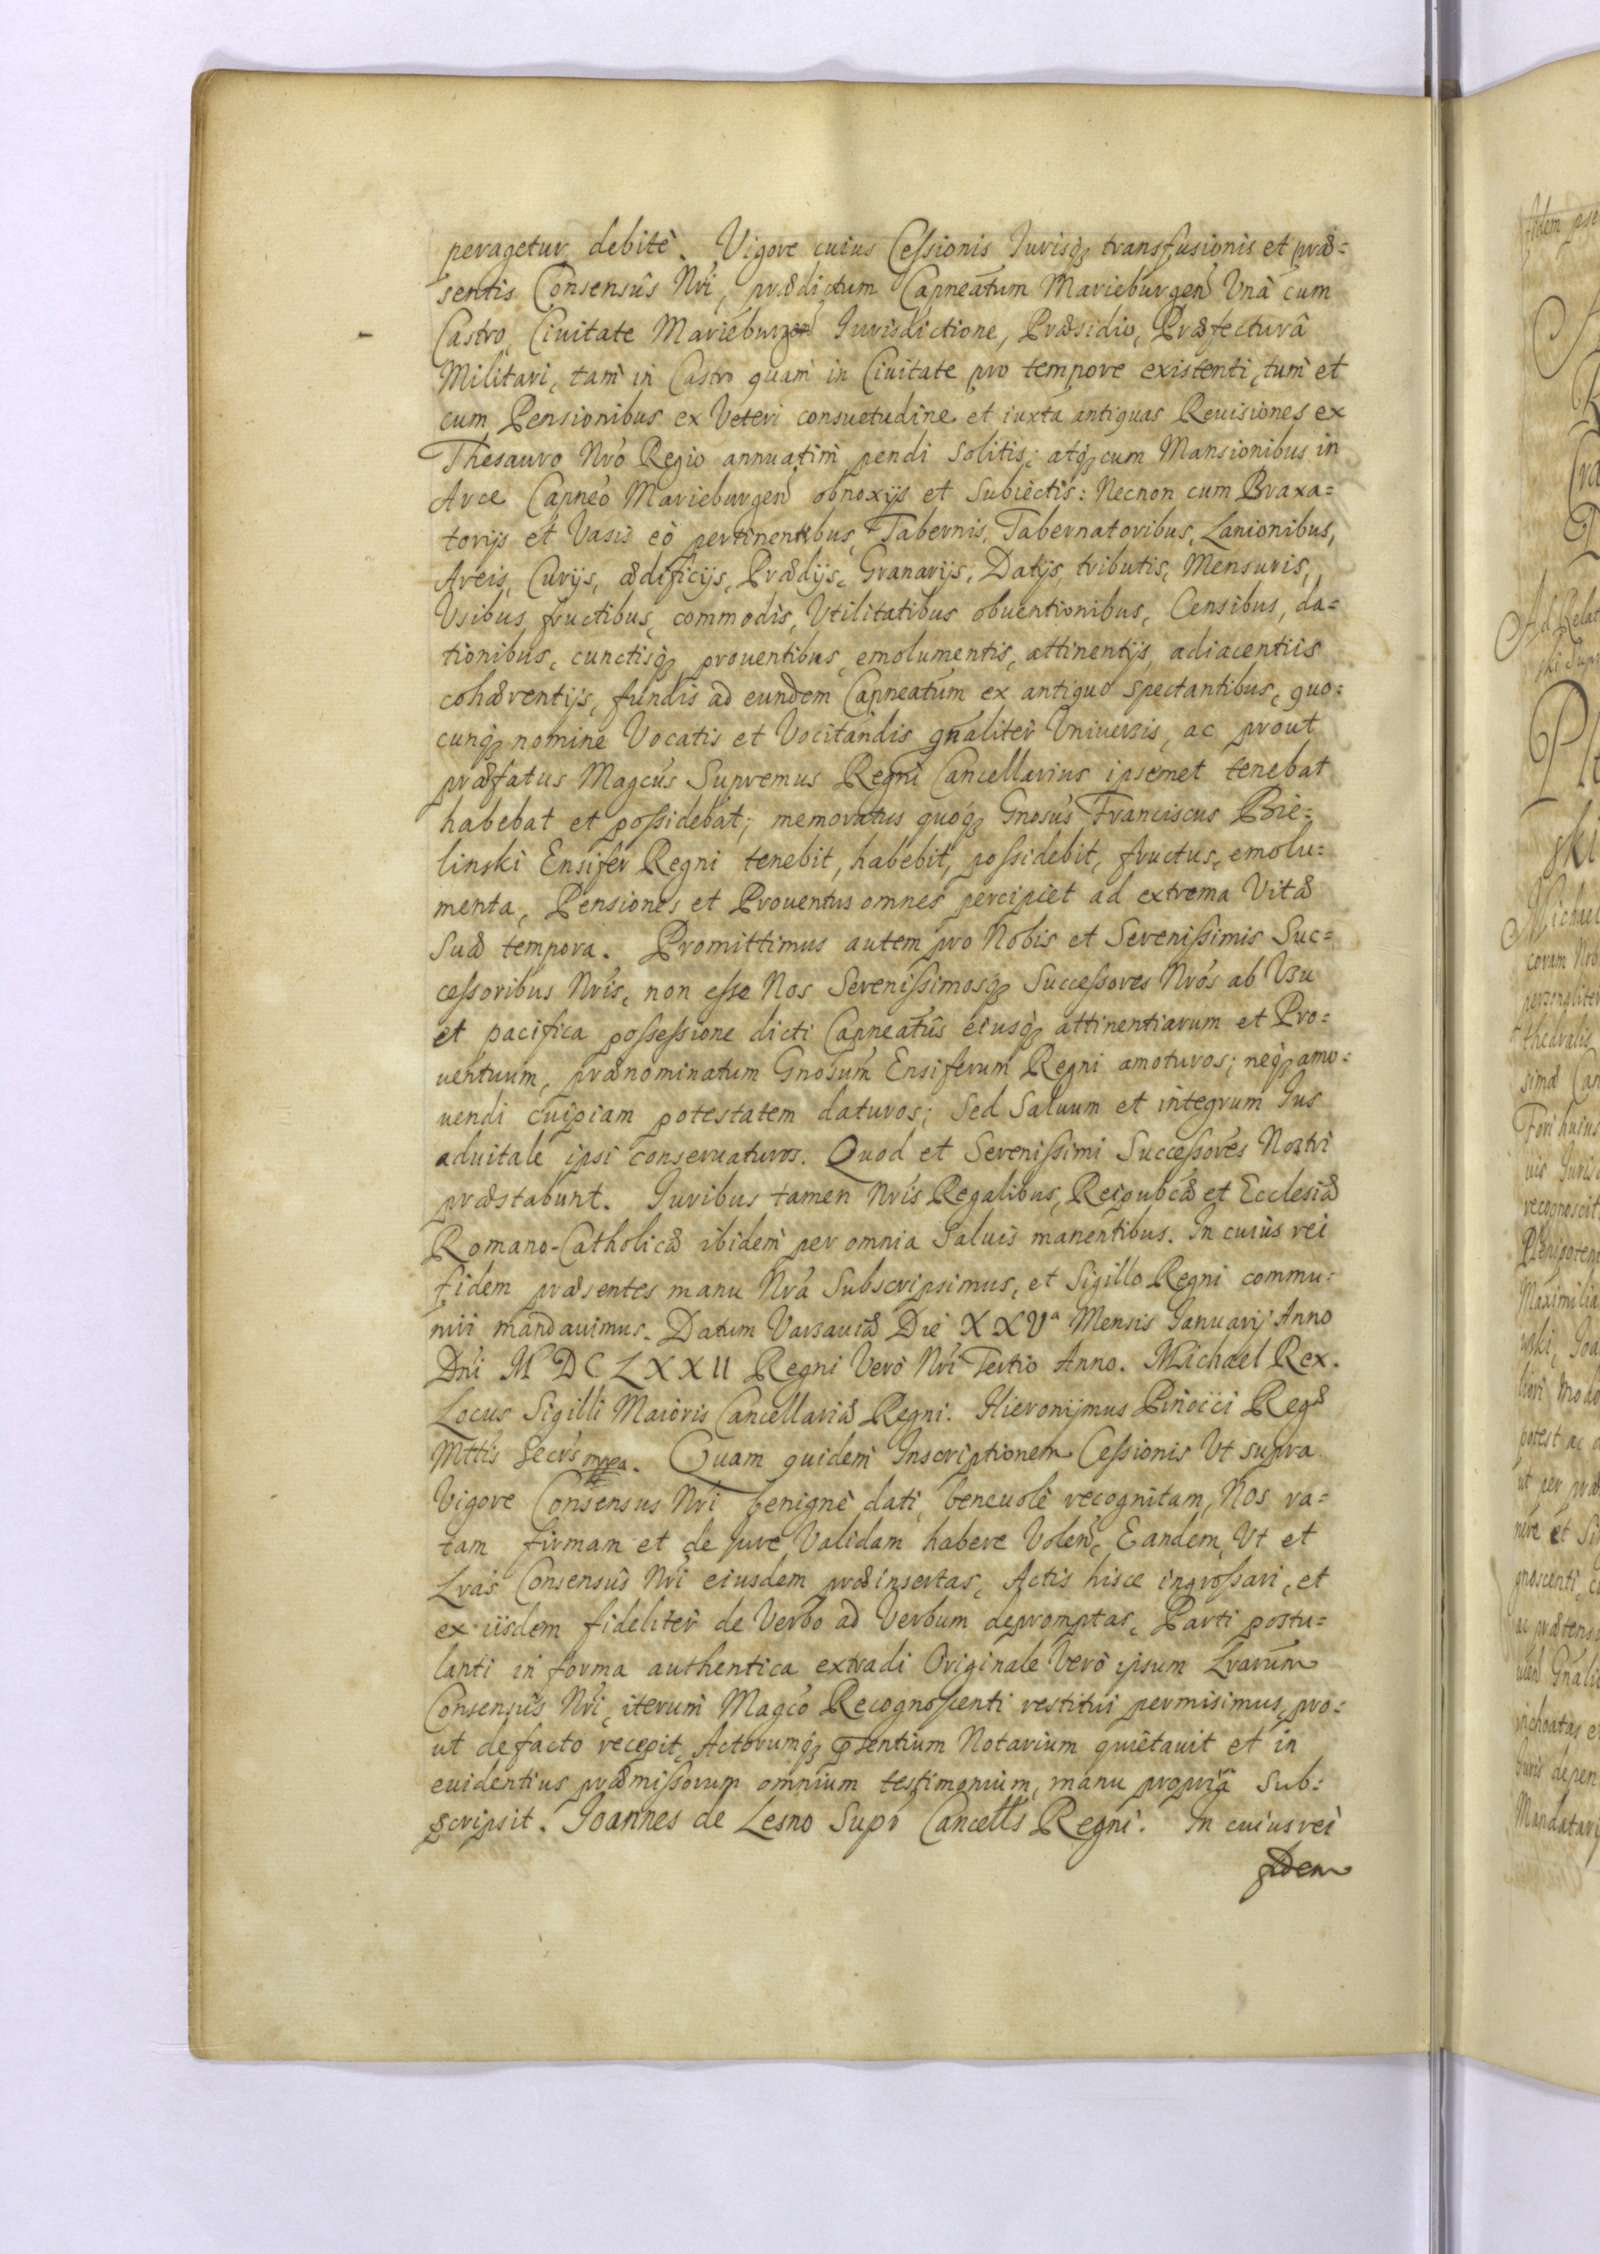 peragetur debitè. Vigore cuius Cessionis Iurisq; transfusionis et præ=
sentis Consensûs Nrĩ, prædictum Capneatum Marieburgen Unà cum
Castro, Ciuitate Marieburgen Iurisdictione, Præsidio, Præfecturâ
Militari, tam in Castro quam in Ciuitate pro tempore existenti, tum et
cum Pensionibus ex Veteri consuetudine et iuxta antiquas Reuisiones ex
Thesauro Nrõ Regio annuatim pendi Solitis; atq; cum Mansionibus in
Arce Capneo Marieburgen obnoxijs et Subiectis: Necnon cum Braxa=
torijs et Vasis eò pertinentibus, Tabernis, Tabernatoribus, Lanionibus,
Areis, Curijs, ædificijs, Prædijs, Granarijs, Datijs, tributis, Mensuris,
Usibus, fructibus, commodis, Utilitatibus obuentionibus, Censibus, da=
tionibus, cunctisq; prouentibus, emolumentis, attinentijs, adiacentiis
cohærentijs, fundis ad eundem Capneatum ex antiquo Spectantibus, quo=
cunq; nomine Vocatis et Vocitandis gnãliter Uniuersis, ac prout
præfatus Magcus Supremus Regni Cancellarius ipsemet tenebat
habebat et possidebat; memoratus quoq; Gnosus Franciscus Bie=
linski Ensifer Regni tenebit, habebit, possidebit, fructus, emolu=
menta, Pensiones et Prouentus omnes percipiet ad extrema Vitæ
Suæ tempora. Promittimus autem pro Nobis et Serenissimis Suc=
cessoribus Nrĩs, non esse Nos Serenissimosq; Successores Nrõs ab Usu
et pacifica possessione dicti Capneatûs eiusq; attinentiarum et Pro=
uentuum, prænominatum Gnosum Ensiferum Regni amoturos; neq; amo=
uendi cuipiam potestatem daturos; Sed Saluum et integrum Ius
aduitale ipsi conseruaturos. Quod et Serenissimi Successores Nostri
præstabunt. Iuribus tamen Nrĩs Regalibus, Reipubcæ et Ecclesiæ
Romano-Catholicæ ibidem per omnia Saluis manentibus. In cuius rei
fidem præsentes manu Nrã Subscripsimus, et Sigillo Regni commu=
niri mandauimus. Datum Varsauiæ Die XXVa Mensis Ianuarij Anno
Dnĩ MDCLXXII Regni Verò Nrĩ Tertio Anno. Michael Rex.
Locus Sigilli Maioris Cancellariæ Regni. Hieronijmus Pinocci Regæ
Mttis Secrs mppa. Quam quidem Inscriptionem Cessionis Ut supra
Vigore Consensus Nrĩ benignè dati, beneuolè recognitam, Nos ra=
tam firmam et de Iure Validam habere Volen, Eandem, Ut et
Lras Consensûs Nrĩ eiusdem præinsertas, Actis hisce ingrossari, et
ex iisdem fideliter de Verbo ad Verbum depromptas, Parti postu=
lanti in forma authentica extradi Originale Verò ipsum Lrarum
Consensûs Nrĩ, iterum Magco Recognoscenti restitui permisimus, pro=
ut de facto recepit, Actorumq; pñsentium Notarium quietauit et in
euidentius præmissorum omnium testimonium, manu propria Sub=
scripsit. Ioannes de Lesno Supr Cancells Regni. In cuius rei
fidem